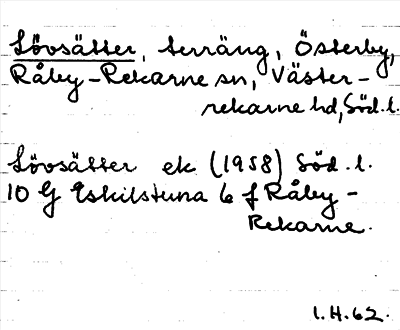 Lövsätter, terräng, Österby,
Råby-Rekarne sn, Väster-
rekarne hd, Söd. l.
Lövsätter ek (1958) Söd. l.
10 G Eskilstuna 6 f Råby-
Rekarne.
1.H.62.